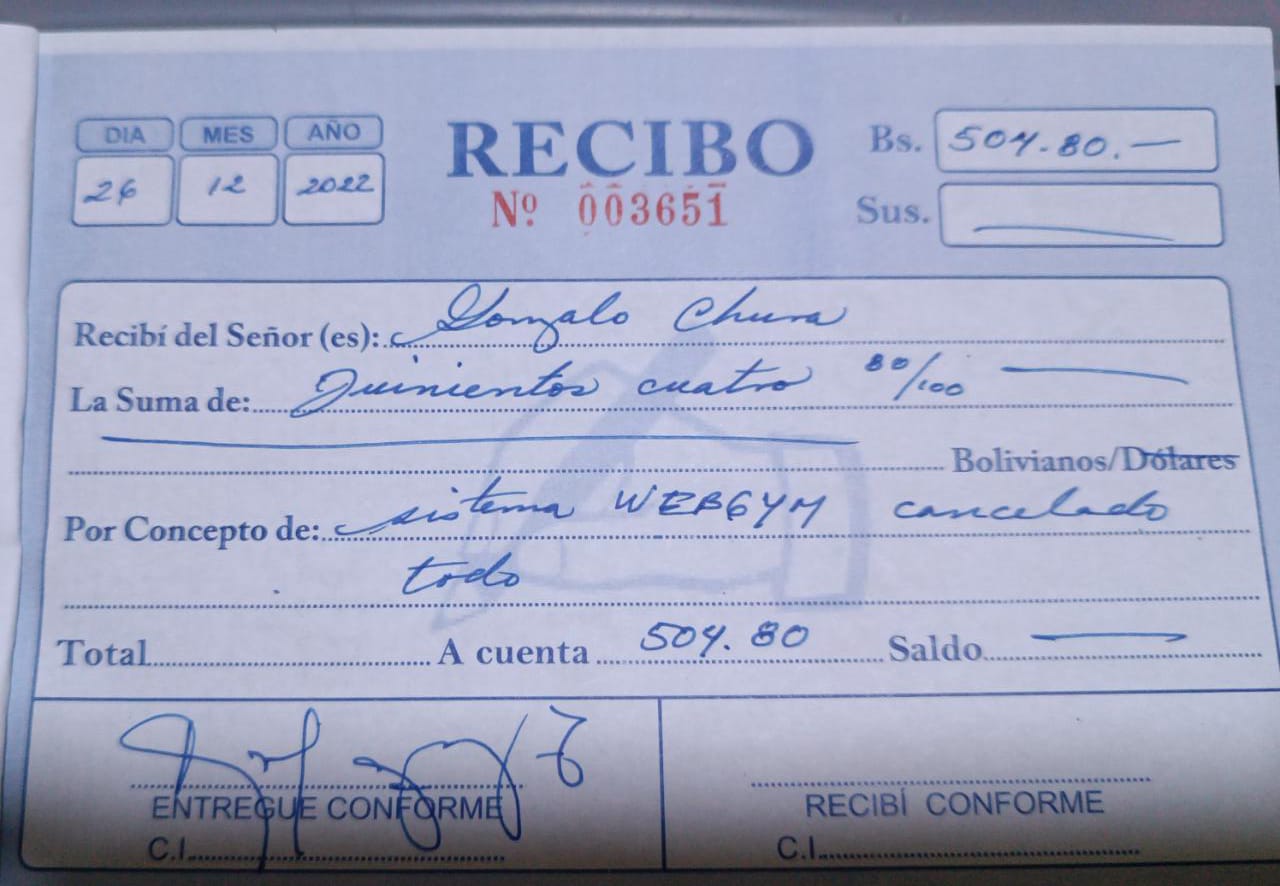 DIA MES AÑO
26 12 2022
RECIBO
Nº 003651
Bs. 504.80.—
Sus. —
Recibí del Señor (es): Gonzalo Chura
La Suma de: Quinientos cuatro 80/100 —
Bolivianos/Dólares
Por Concepto de: sistema WEBGYM cancelado
todo
Total A cuenta 504.80 Saldo —
ENTREGUE CONFORME
C.I.
RECIBÍ CONFORME
C.I.